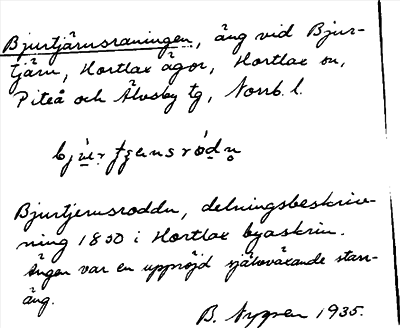 Bjurtjärnsraningen, äng vid Bjur-
tjärn, Hortlax ägor, Hortlax sn,
Piteå och Älvsby tg, Norrb. l.
Bjurtjernsroddn, delningsbeskriv-
ning 1850 i Hortlax byaskrin.
Ängen var en uppröjd självväxande starr-
äng.
B. Nygren 1935.